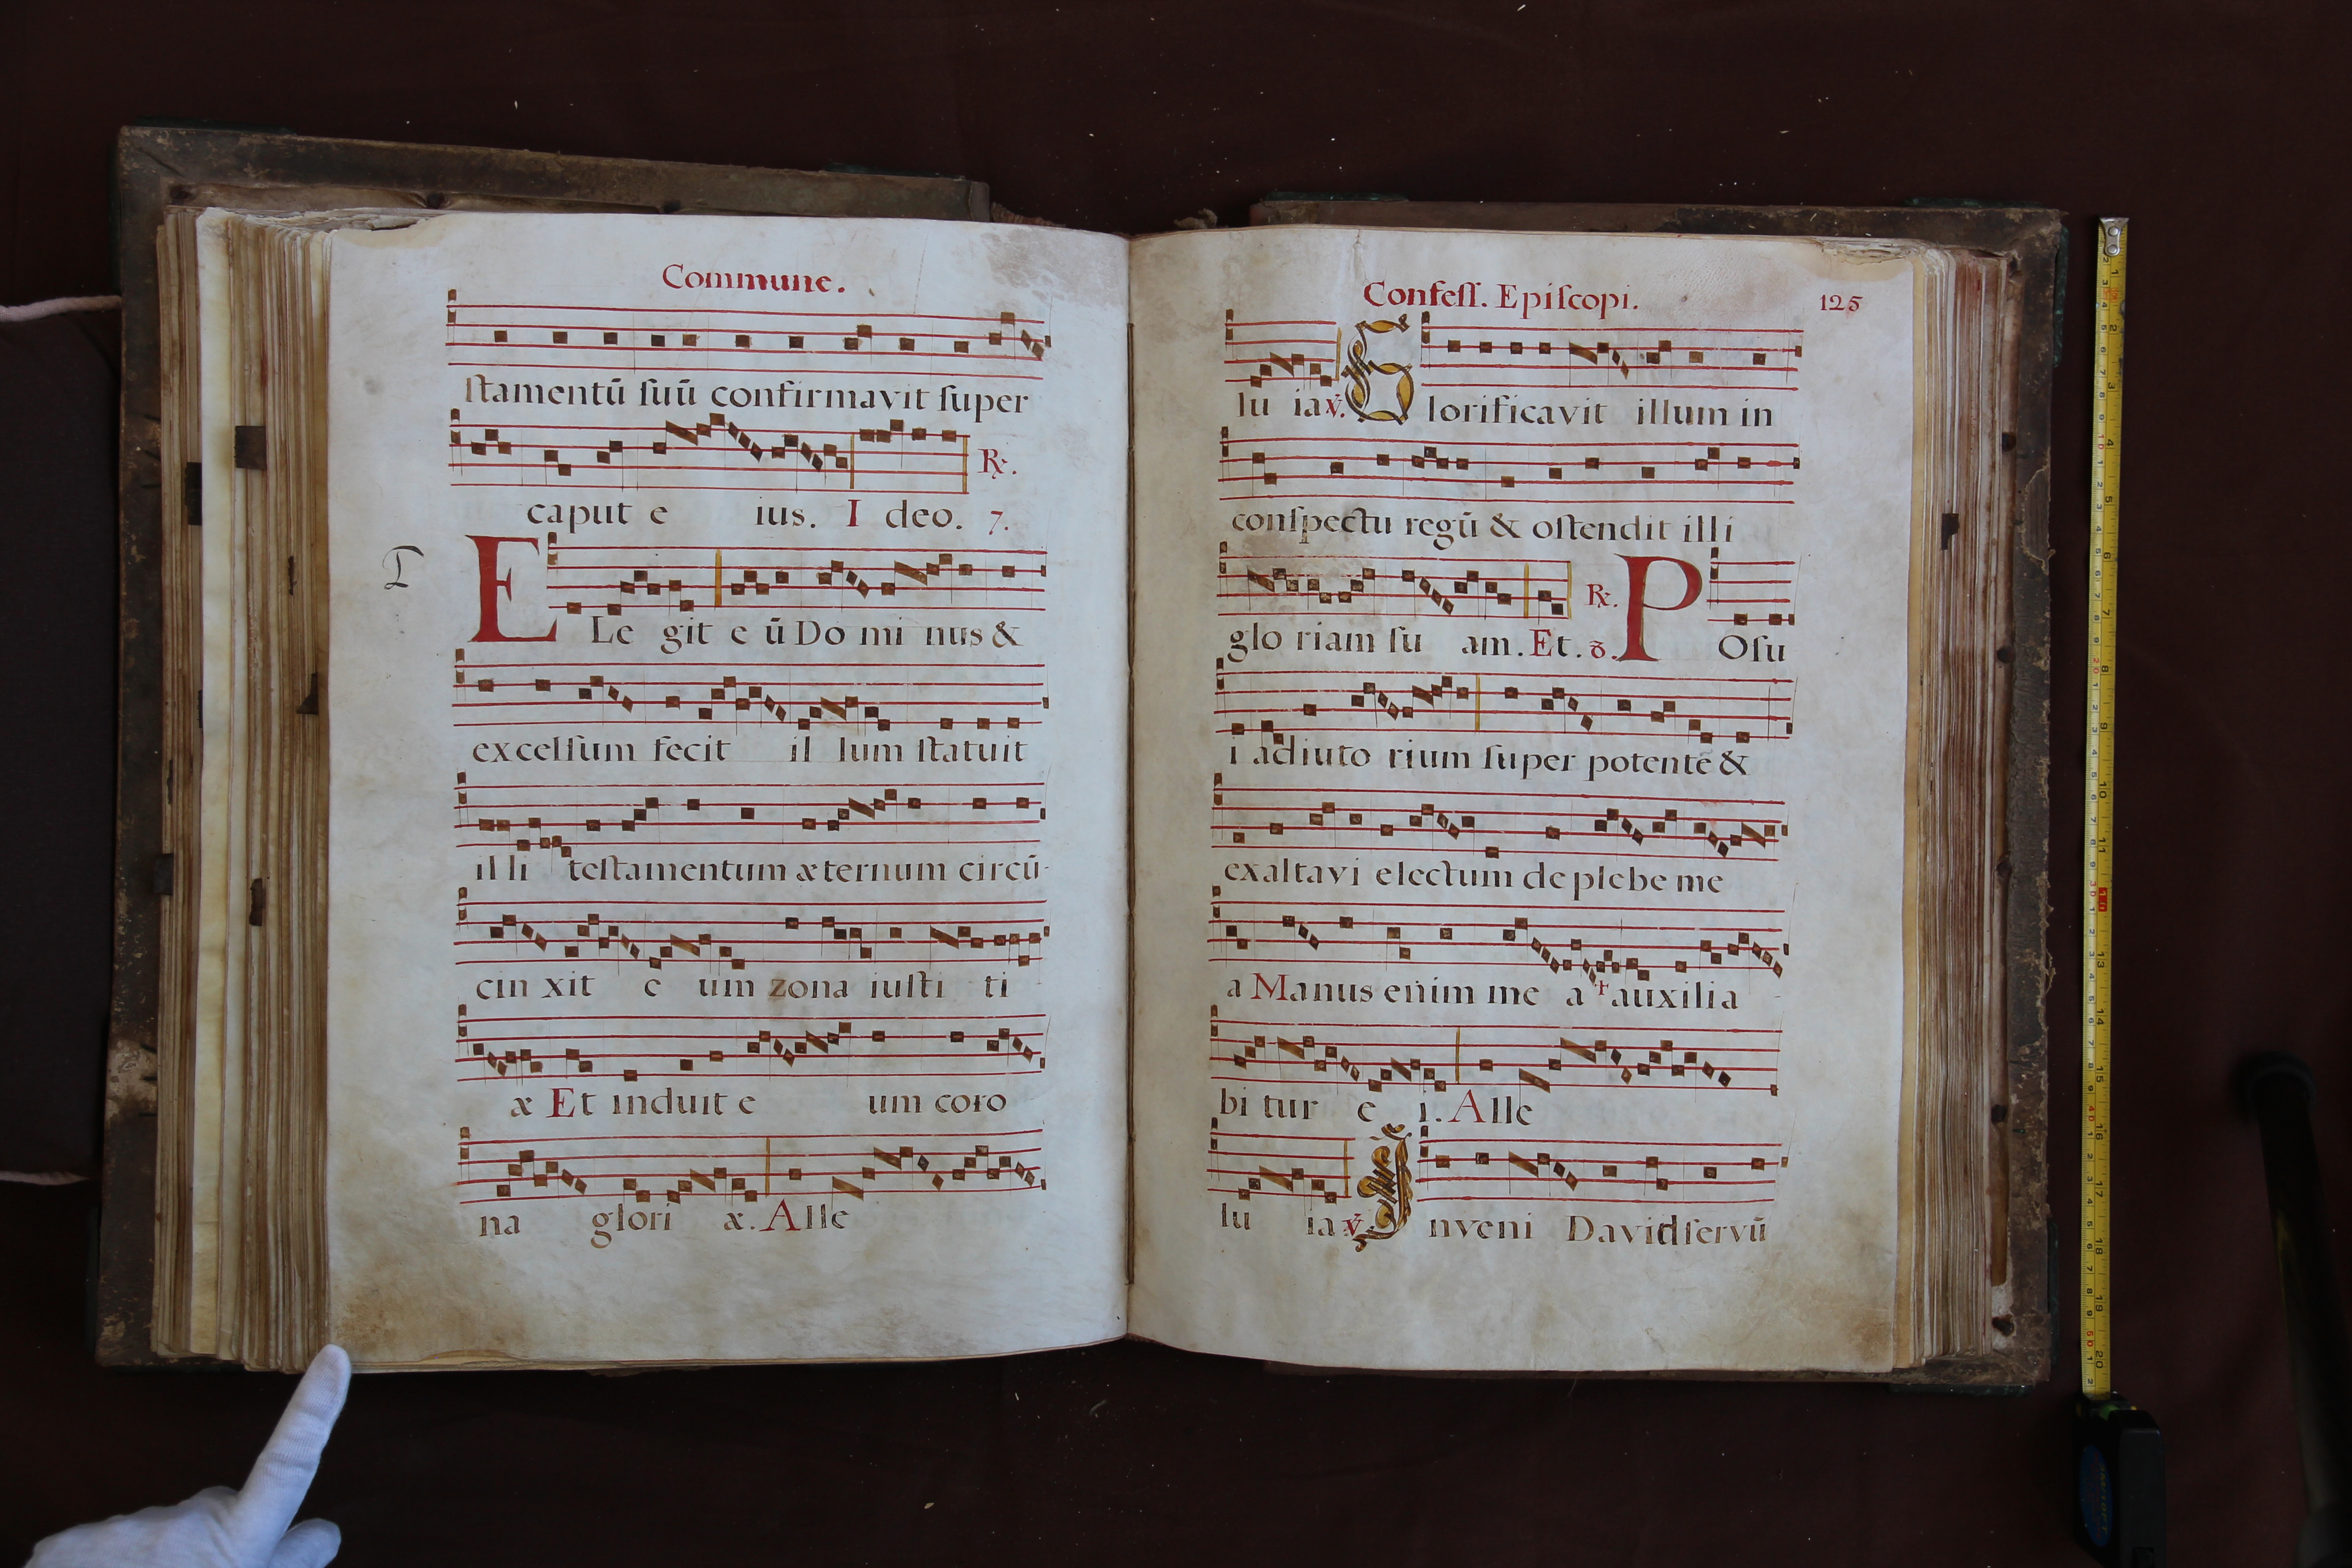 Commune.
ſtamentū ſuū confirmavit ſuper
caput e ius. I deo. 7.
℟.
E Le git e ū Do mi nus &
excelſum fecit il lum ſtatuit
il li teſtamentum æternum circū-
cin xit e um zona iuſti ti
æ Et induit e um coro
na glori æ. Alle
Confeſſ. Epiſcopi. 125
lu ia ℣. G lorificavit illum in
conſpectu regū & oſtendit illi
glo riam ſu am. Et. 8. ℟. P Oſu
i adiuto rium ſuper potentē &
exaltavi electum de plebe me
a Manus enim me a auxilia
bi tur e i. Alle
lu ia ℣. I nveni David ſervū